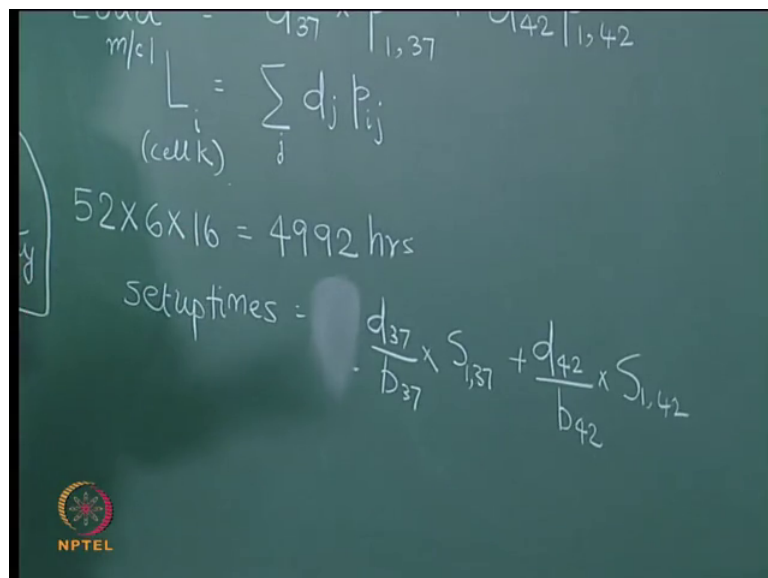 Load = d37 × p1,37 + d42 p1,42
m/c1
Li = ∑j dj pij
(cell k)
52×6×16 = 4992 hrs
y
setuptimes = d37/b37 × S1,37 + d42/b42 × S1,42
NPTEL